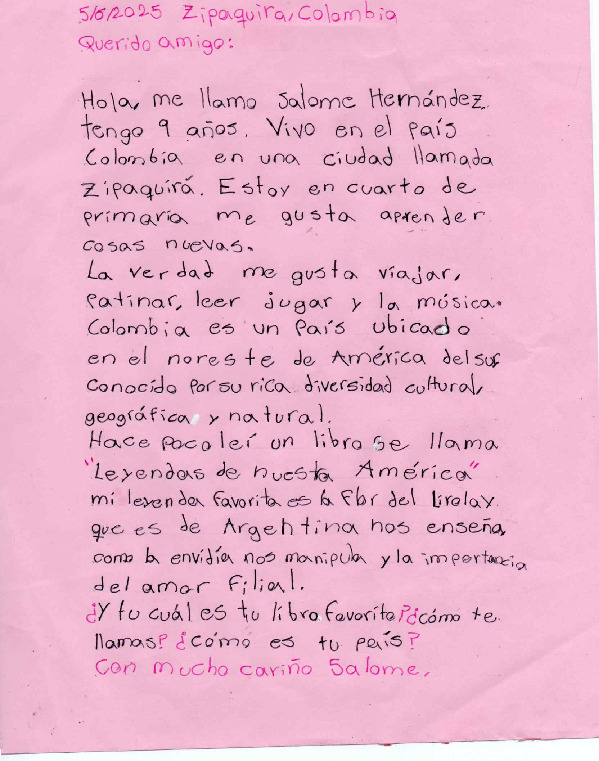 5/6/2025 Zipaquira, Colombia
Querido amigo:
Hola, me llamo Salome Hernández
tengo 9 años. Vivo en el país
Colombia en una ciudad llamada
Zipaquirá. Estoy en cuarto de
primaria me gusta aprender
cosas nuevas.
La verdad me gusta viajar,
Patinar, leer jugar y la música.
Colombia es un País ubicado
en el noreste de América del sur
Conocido Por su rica diversidad cultural,
geográfica y natural.
Hace poco leí un libro se llama
"Leyendas de nuesta América"
mi leyenda favorita es la flor del lirolay
que es de Argentina nos enseña
como la envidia nos manipula y la importancia
del amor filial.
¿Y tu cuál es tu libro favorito? ¿cómo te
llamas? ¿cómo es tu país?
Con mucho cariño Salome,